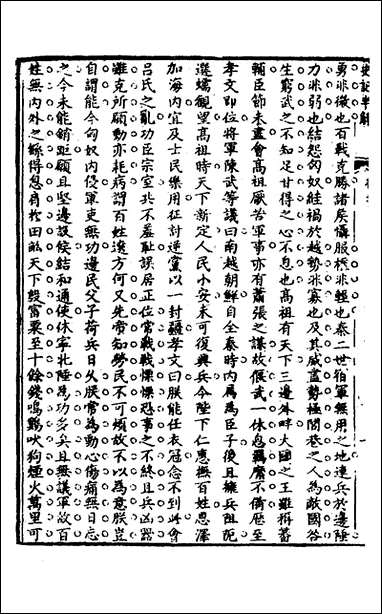 史記半解
勇非微也百戰克勝諸侯懾服權非輕也秦二世宿軍無用之地連兵於邊陲
力非弱也結怨匈奴絓禍於越勢非寡也及其威盡勢極閭巷之人為敵國咎
生窮武之不知足甘得之心不息也高祖有天下三邊外畔大國之王雖稱蕃
輔臣節未盡會高祖厭苦軍事亦有蕭張之謀故偃武一休息羈縻不備歷至
孝文即位將軍陳武等議曰南越朝鮮自全秦時內屬為臣子後且擁兵阻阨
選蠕觀望高祖時天下新定人民小安未可復興兵今陛下仁惠撫百姓恩澤
加海內宜及士民樂用征討逆黨以一封疆孝文曰朕能任衣冠念不到此會
呂氏之亂功臣宗室共不羞恥誤居正位常戰戰慄慄恐事之不終且兵凶器
雖克所願動亦耗病謂百姓遠方何又先帝知勞民不可煩故不以為意朕豈
自謂能今匈奴內侵軍吏無功邊民父子荷兵日久朕常為動心傷痛無日忘
之今未能銷距願且堅邊設候結和通使休寧北陲為功多矣且無議軍故百
姓無內外之繇得息肩於田畝天下殷富粟至十餘錢鳴鷄吠狗煙火萬里可